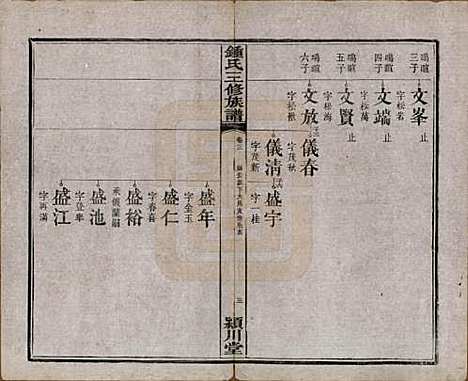 鳴暄三子
文峯
止
字松茗
鳴暄四子
文端
止
字松萬
鳴暄五子
文賢
止
字松海
鳴暄六子
文放
字松嶽
儀春
字茂秋
盛宇
字桂
儀清
字茂新
鍾氏三修族譜
卷三
三
潁川堂
盛年
字金玉
盛仁
字春喜
盛裕
承儀蘭嗣
盛池
字登庠
盛江
字再滿